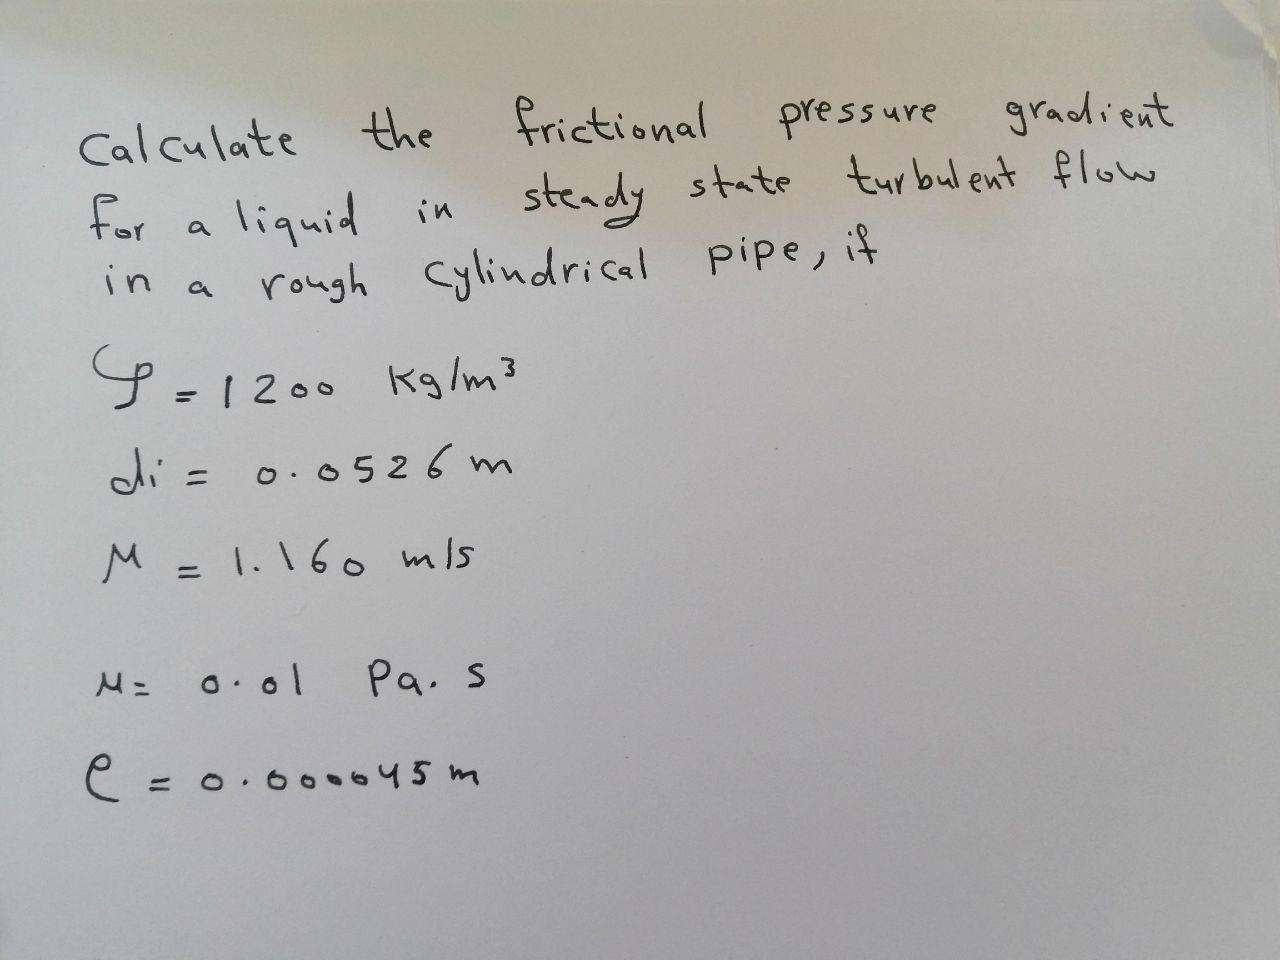 Calculate the frictional pressure gradient
for a liquid in steady state turbulent flow
in a rough cylindrical pipe, if
ρ = 1200 kg/m³
di = 0.0526 m
μ = 1.160 m/s
μ = 0.01 Pa. s
e = 0.000045 m